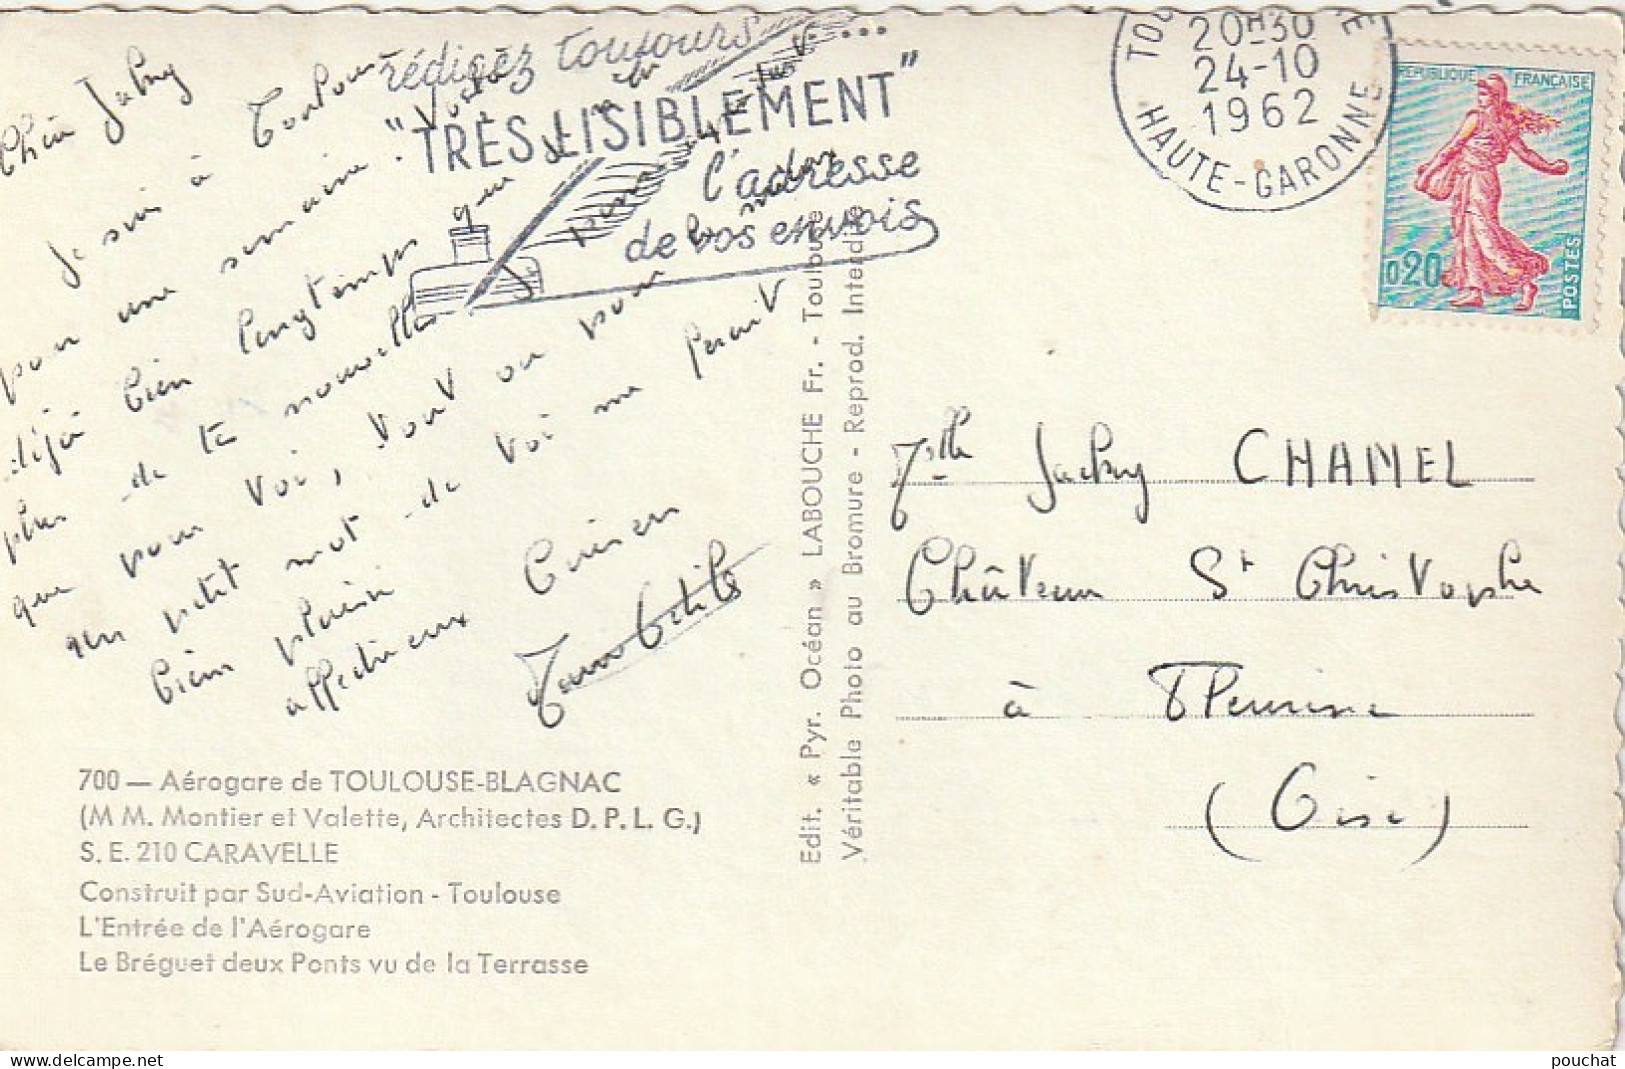 Chère Jacky
Je suis à Toulouse
pour une semaine. Voilà
déjà bien longtemps que
plus de tes nouvelles
que pour toi, tout va pour
un petit mot de toi me ferait
bien plaisir
affectueux baisers
rédigez toujours ...
"TRÈS LISIBLEMENT"
l'adresse
de vos envois
20H30
24-10
1962
HAUTE-GARONNE
REPUBLIQUE FRANÇAISE
0,20
POSTES
Edit. « Pyr. Océan » LABOUCHE Fr. - Toulouse
Véritable Photo au Bromure - Reprod. Interdite
Mlle Jacky CHAMEL
Château St Christophe
à Fleurine
(Oise)
700 — Aérogare de TOULOUSE-BLAGNAC
(M M. Montier et Valette, Architectes D. P. L. G.)
S. E. 210 CARAVELLE
Construit par Sud-Aviation - Toulouse
L'Entrée de l'Aérogare
Le Bréguet deux Ponts vu de la Terrasse
delcampe.net
pouchat